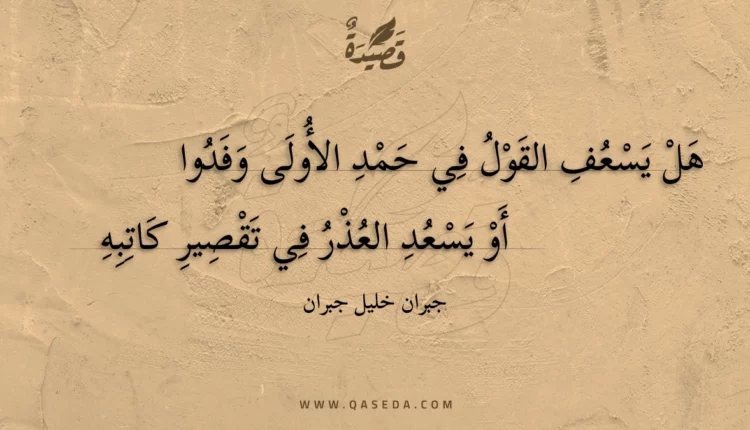 قَصِيدَةٌ
هَلْ يَسْعُفِ القَوْلُ فِي حَمْدِ الأُولَى وَفَدُوا
أَوْ يَسْعُدِ العُذْرُ فِي تَقْصِيرِ كَاتِبِهِ
جبران خليل جبران
WWW.QASEDA.COM